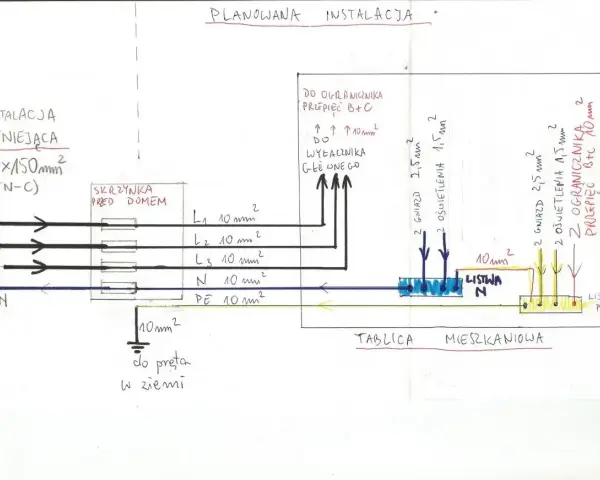 PLANOWANA INSTALACJA
TALACJA
NIEJĄCA
x150mm²
N-C)
N
SKRZYNKA
PRZED DOMEM
L1 10 mm²
L2 10 mm²
L3 10 mm²
N 10 mm²
PE 10 mm²
10mm²
do pręta
w ziemi
DO OGRANICZNIKA
PRZEPIĘĆ B+C
10mm²
DO
WYŁĄCZNIKA
GŁÓWNEGO
Z GNIAZD 2,5 mm²
Z OŚWIETLENIA 1,5 mm²
LISTWA
N
10 mm²
Z GNIAZD 2,5 mm²
Z OŚWIETLENIA 1,5 mm²
Z OGRANICZNIKA
PRZEPIĘĆ B+C 10 mm²
LIS
P
TABLICA MIESZKANIOWA